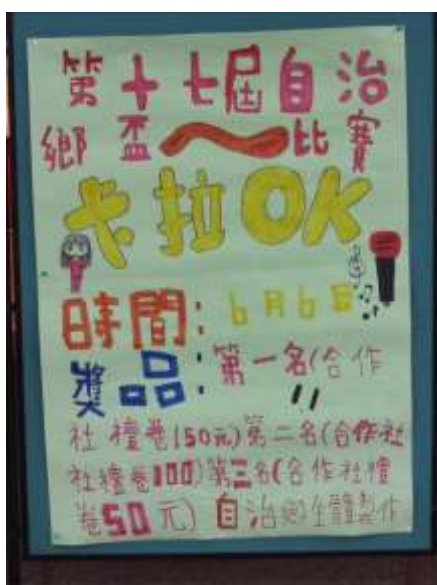 第十七屆自治
鄉盃～比賽
卡拉OK
時間：6月6日
獎品：第一名(合作
社禮卷150元)第二名(合作社
社禮卷100)第三名(合作社禮
卷50元)自治鄉全體製作